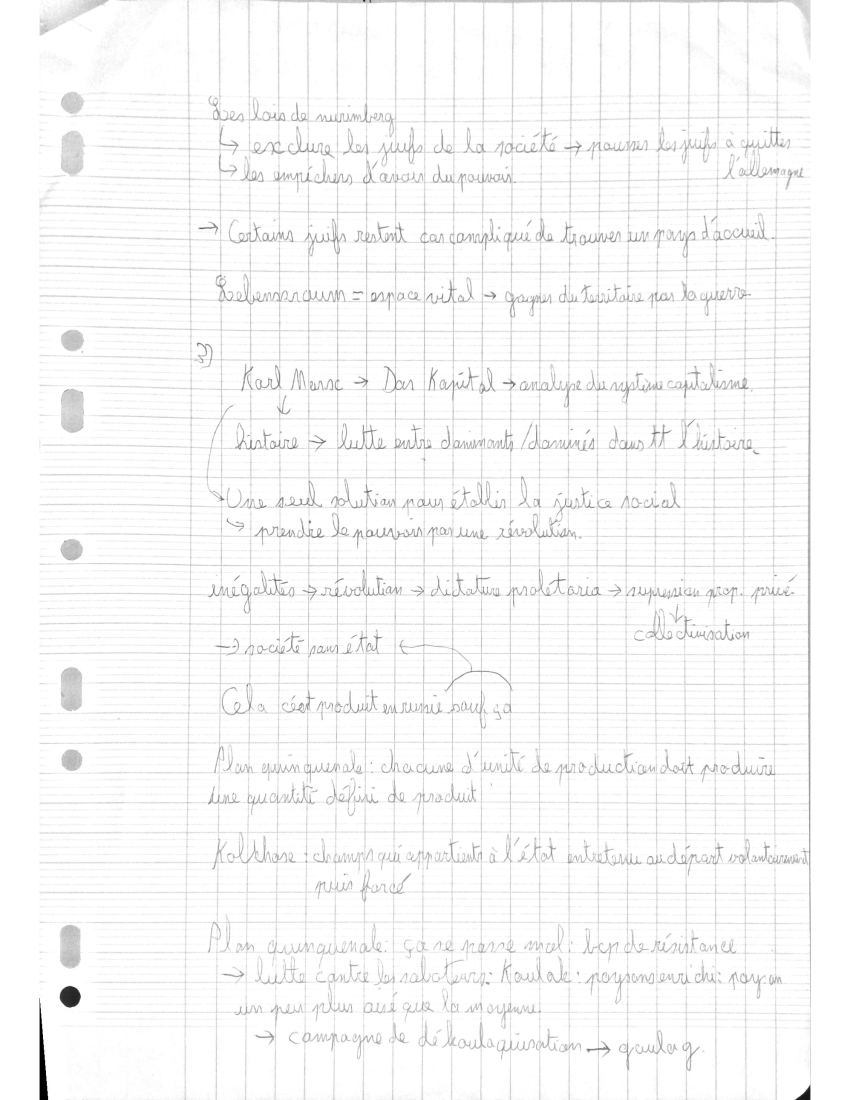 Les lois de nurimberg
↳ exclure les juifs de la société → pousser les juifs à quitter
l'allemagne
↳ les empêchers d'avoir du pouvoir.
→ Certains juifs restent car compliqué de trouver un pays d'accueil.
Lebensraum = espace vital → gagner du territoire par la guerre
3)
Karl Marx → Das Kapital → analyse du système capitalisme.
↓
histoire → lutte entre dominants / dominés dans tt l'histoire.
Une seul solution pour établir la justice social
↳ prendre le pouvoir par une révolution.
inégalités → révolution → dictature proletaria → supression prop. privé.
↓
collectivisation
→ société sans état ←
Cela c'est produit en russie sauf ça
Plan quinquenale : chacune d'unité de production doit produire
une quantité défini de produit
Kolkhose : champs qui appartients à l'état entretenu au départ volontairement
puis forcé
Plan quinquenale : ça se passe mal : bcp de résistance
→ lutte contre les saboteurs : Koulak : paysans enrichi : paysan
un peu plus aisé que la moyenne.
→ campagne de dékoulaquisation → goulag.